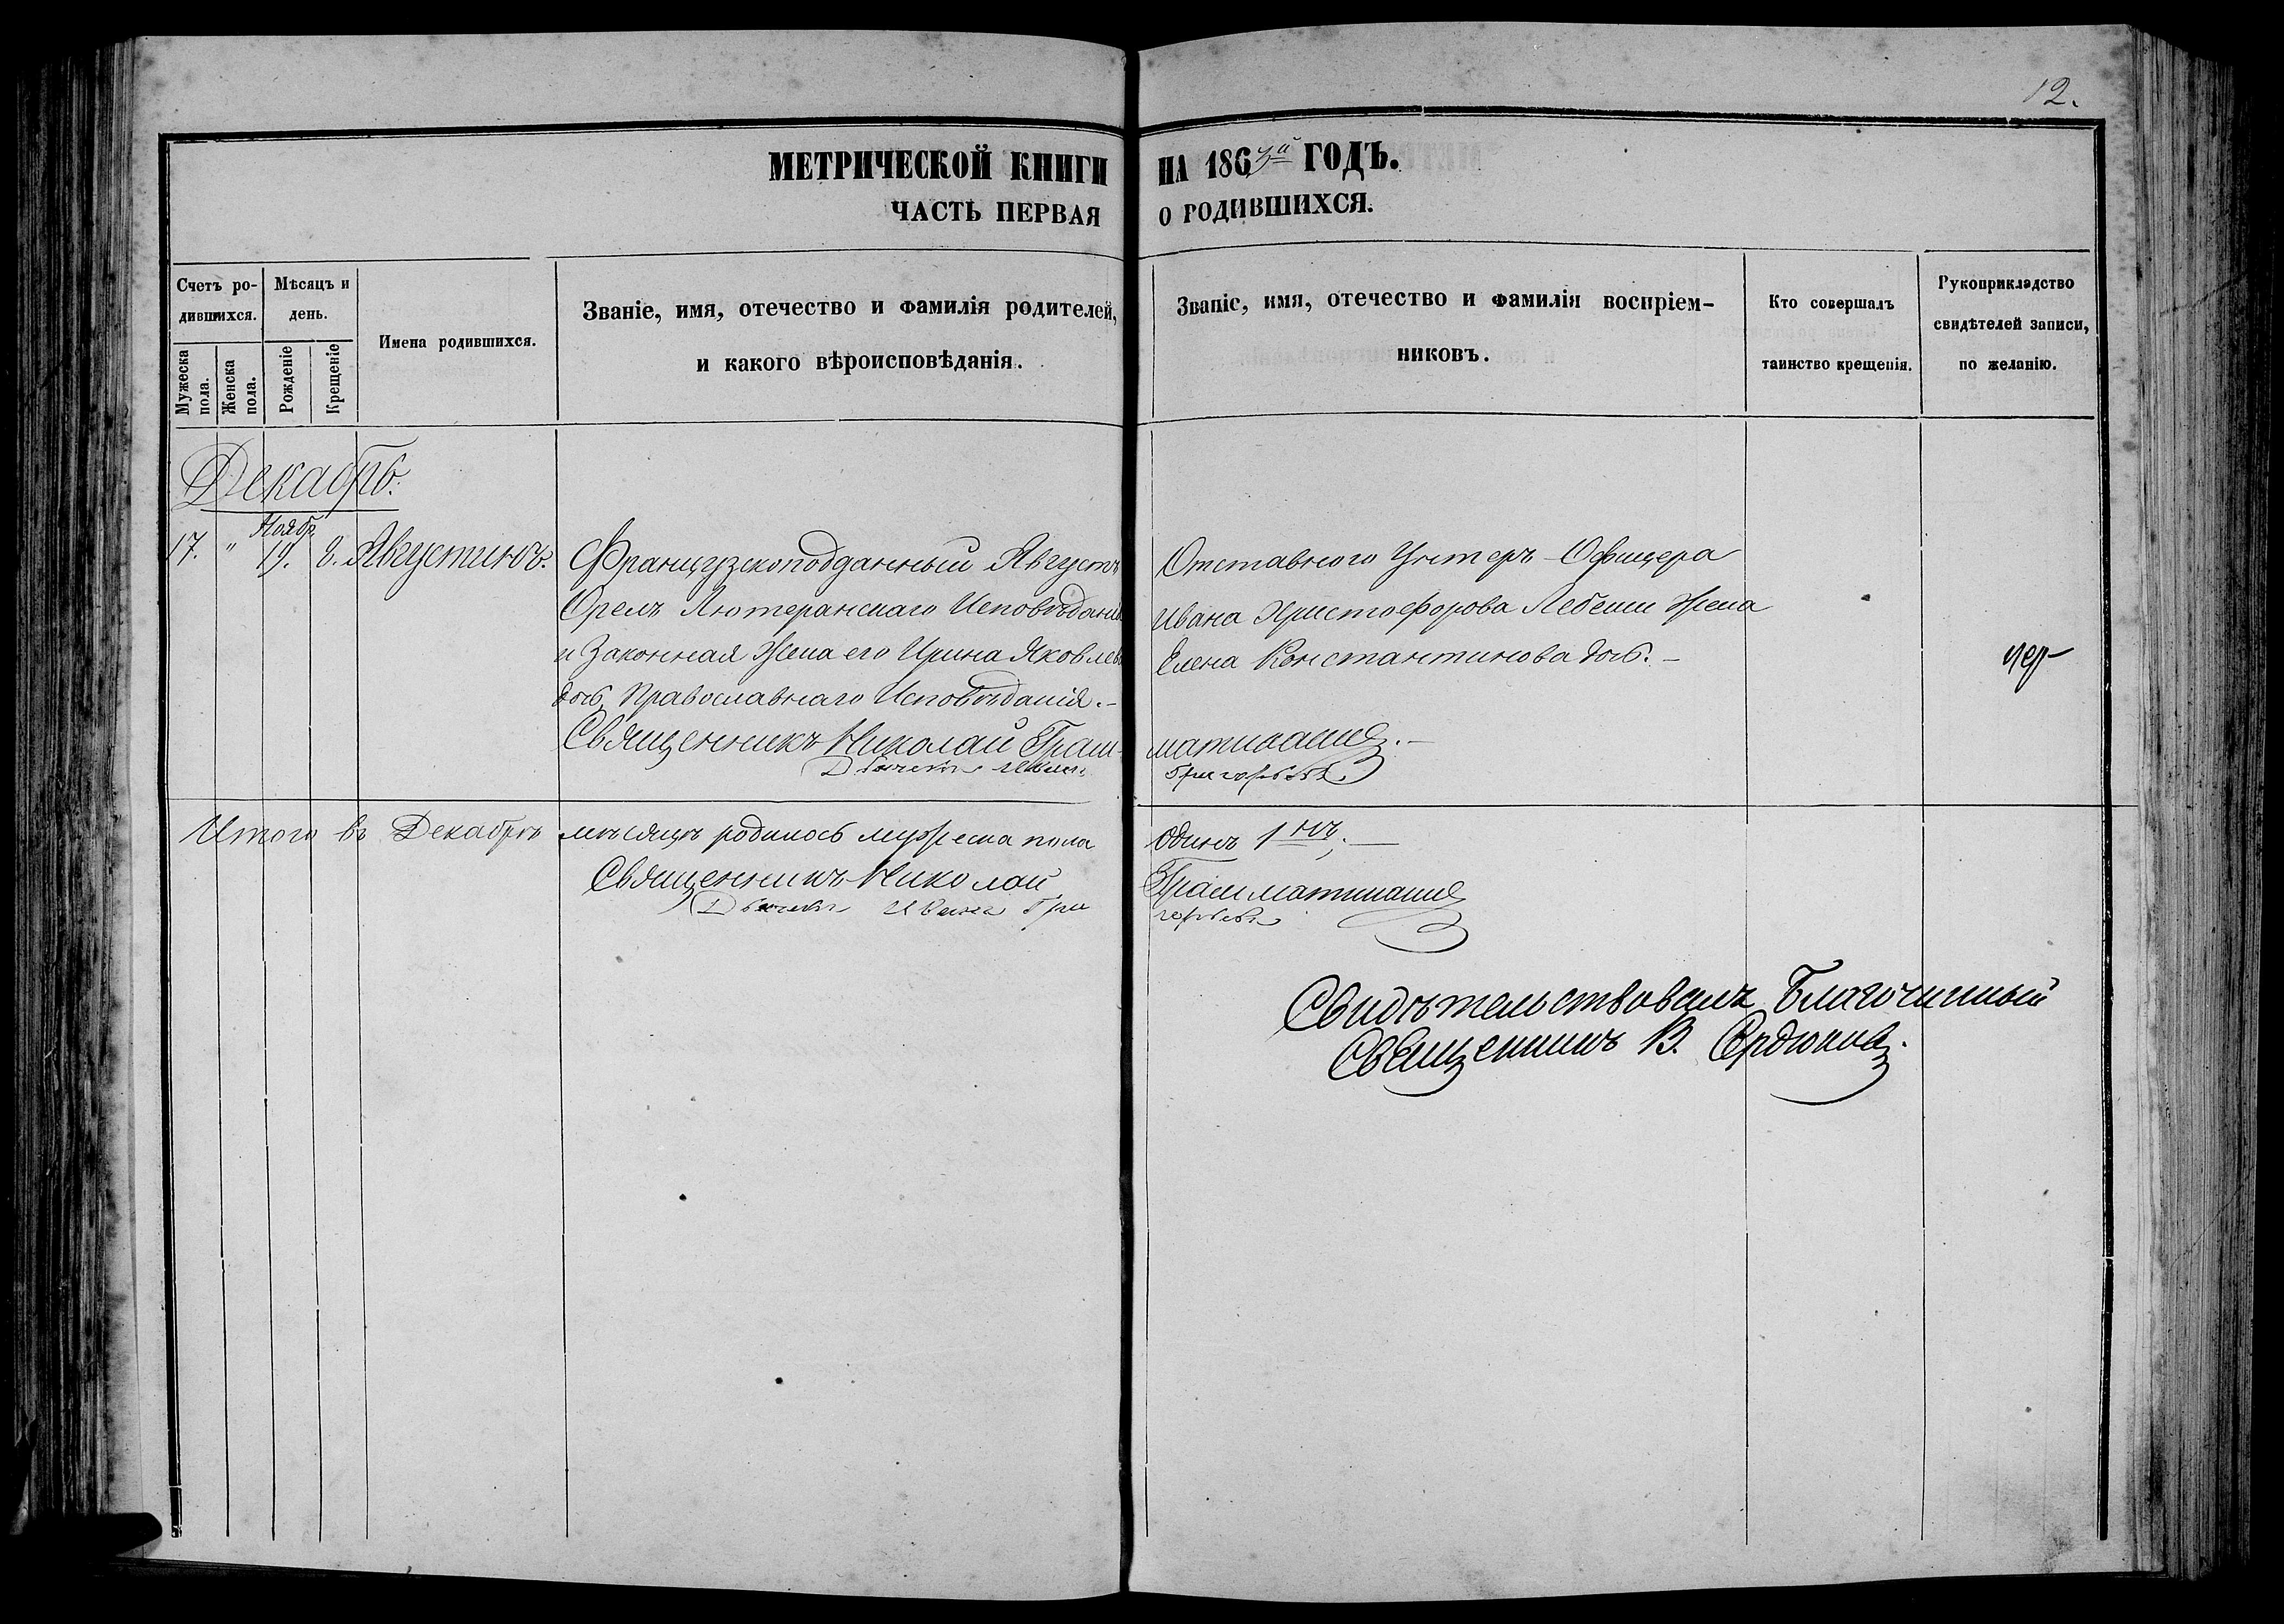 12.
МЕТРИЧЕСКОЙ КНИГИ НА 1863й ГОДЪ.
ЧАСТЬ ПЕРВАЯ О РОДИВШИХСЯ.
Счетъ родившихся.
Мужеска пола.
Женска пола.
Мѣсяцъ и день.
Рожденіе
Крещеніе
Имена родившихся.
Званіе, имя, отечество и фамилія родителей,
и какого вѣроисповѣданія.
Званіе, имя, отечество и фамилія воспріем-
никовъ.
Кто совершалъ
таинство крещенія.
Рукоприкладство
свидѣтелей записи,
по желанію.
Декабрь.
Ноябр.
17. " 19. 8. Августинъ.
Французскоподданный Августъ
Орелъ Лютеранскаго Исповѣданія
и Законная Жена его Ирина Яковлева
дочь, Православнаго Исповѣданія.-
Отставного Унтеръ-Офицера
Ивана Христофорова Жена
Елена Константинова дочь.-
Священникъ Николай Грам-
Дьячекъ Григорьевъ
Итого въ Декабрѣ мѣсяцѣ родилось мужеска пола одинъ 1нъ.
Священникъ Николай
Дьячекъ Иванъ Григорьевъ
Свидѣтельствовалъ Благочинный
Священникъ В.